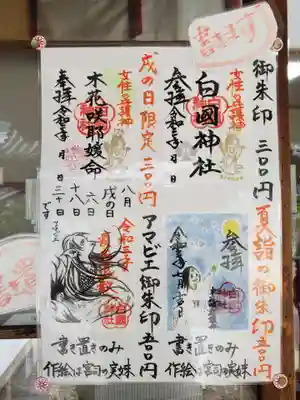 書きます
御朱印 三〇〇円
女性の守護神
白國神社
奉拝 令和三年 月 日
戌の日限定 三〇〇円
女性の守護神
木花咲耶媛命
奉拝 令和三年 月 日
八月
戌の日
六日
十八日
三十日
です
夏詣の御朱印 五〇〇円
奉拝
書き置きのみ
作絵は宮司の実妹
アマビエ御朱印 五〇〇円
令和三年
書き置きのみ
作絵は宮司の実妹